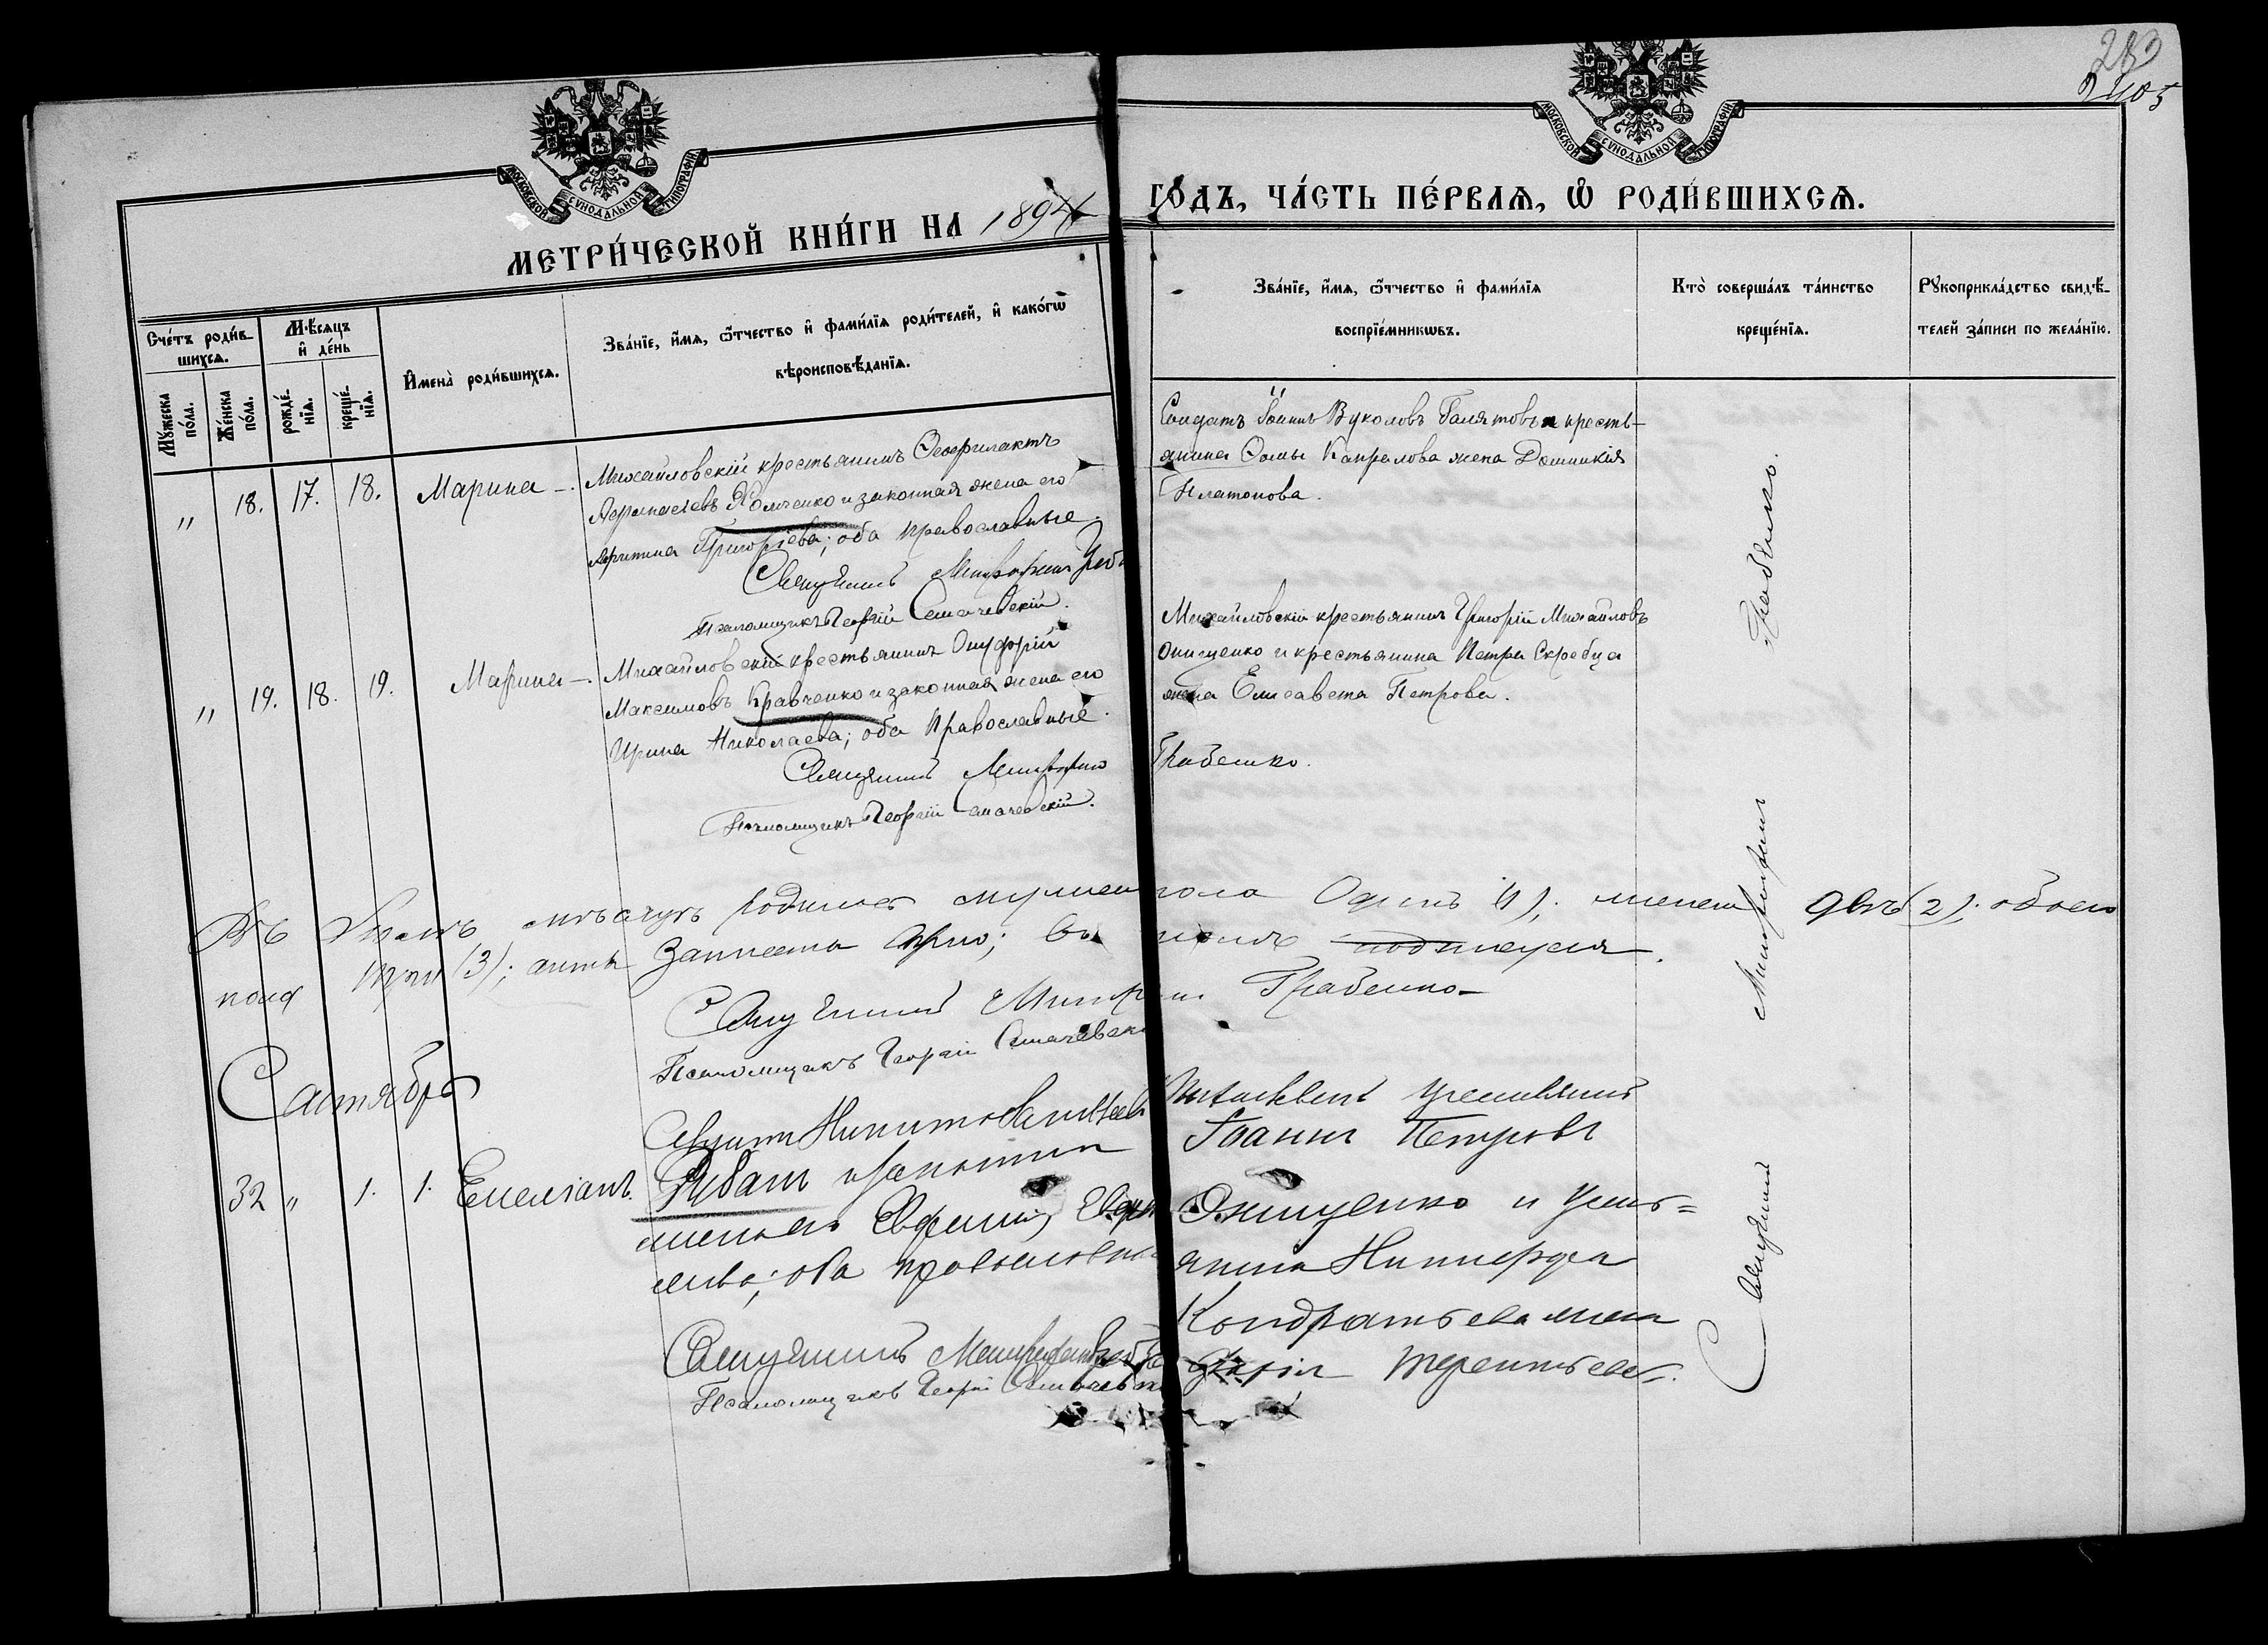 283
2405
МОСКОВСКОЙ СѴНОДАЛЬНОЙ ТИПОГРАФІИ
МОСКОВСКОЙ СѴНОДАЛЬНОЙ ТИПОГРАФІИ
МЕТРИ́ЧЕСКОЙ КНИ́ГИ НА 1894
ГО́ДЪ, ЧА́СТЬ ПЕ́РВАѦ, Ѿ РОДИ́ВШИХСѦ.
Сче́тъ роди́в-
шихсѧ.
Му́жеска по́ла.
Же́нска по́ла.
Мѣ́сѧцъ и҆ де́нь
рожде́-
нїѧ.
креще́-
нїѧ.
И҆мена̀ роди́вшихсѧ.
Зва́нїе, и҆́мѧ, ѻ҆́тчество и҆ фами́лїѧ роди́телей, и҆ како́гѡ
вѣроисповѣ́данїѧ.
Зва́нїе, и҆́мѧ, ѻ҆́тчество и҆ фами́лїѧ
воспрїе́мникѡвъ.
Кто̀ соверша́лъ та́инство
креще́нїѧ.
Рꙋкоприкла́дство свидѣ́-
телей за́писи по жела́нїю.
" 18. 17. 18. Марина –.
Михайловскій крестьянинъ Ѳеофилактъ
Аѳанасіевъ Хомченко и законная жена его
Григоріева; оба православные.
Священникъ Митрофанъ
Псаломщикъ Георгій Семачевскій.
Солдатъ Іоаннъ Вуколовъ и кресть-
янина Ѳомы Капралова жена Домникія
Платонова.
" 19. 18. 19. Марина –.
Михайловскій крестьянинъ Онуфрій
Максимовъ Кравченко и законная жена его
Ирина Николаева; оба православные.
Священникъ Митрофанъ
Псаломщикъ Георгій Семачевскій.
Михайловскій крестьянинъ Григорій Михайловъ
Онищенко и крестьянина Петра Скребца
жена Елисавета Петрова.
Грабенко.
Въ мѣсяцѣ родилось мужеск пола Одинъ (1); женск двѣ (2); обоего
пола три (3); актъ записано
Священникъ Митрофанъ Грабенко
Псаломщикъ Георгій Семачевскій
Сентябрь
32 " 1. 1. Емеліанъ.
Никита
Рибанъ и законная
жена его Евфимія
оба православные
Священникъ Митрофанъ
Псаломщикъ Георгій Семачевскій
Іоаннъ Петровъ
Онищенко и крест=
янина Никифора
Кондратьева жена
Дарія Терентьева.
Священникъ Митрофанъ Грабенко.